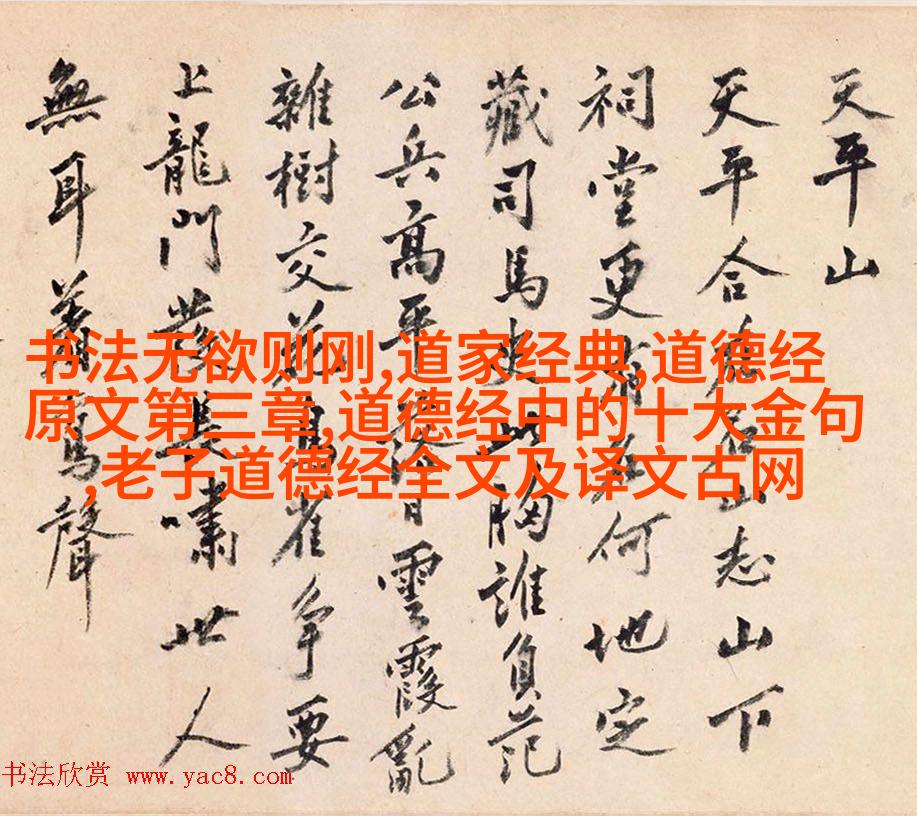 天平山
天平合德山志山下
祠堂更何地定
藏司馬史此胸誰負范
公兵高平日雲霞亂
雜樹交花鳥雀爭要
上龍門發長嘯世人
無耳聲
书法无欲则刚,道家经典,道德经
原文第三章,道德经中的十大金句
,老子道德经全文及译文古网
书法欣赏 www.yac8.com